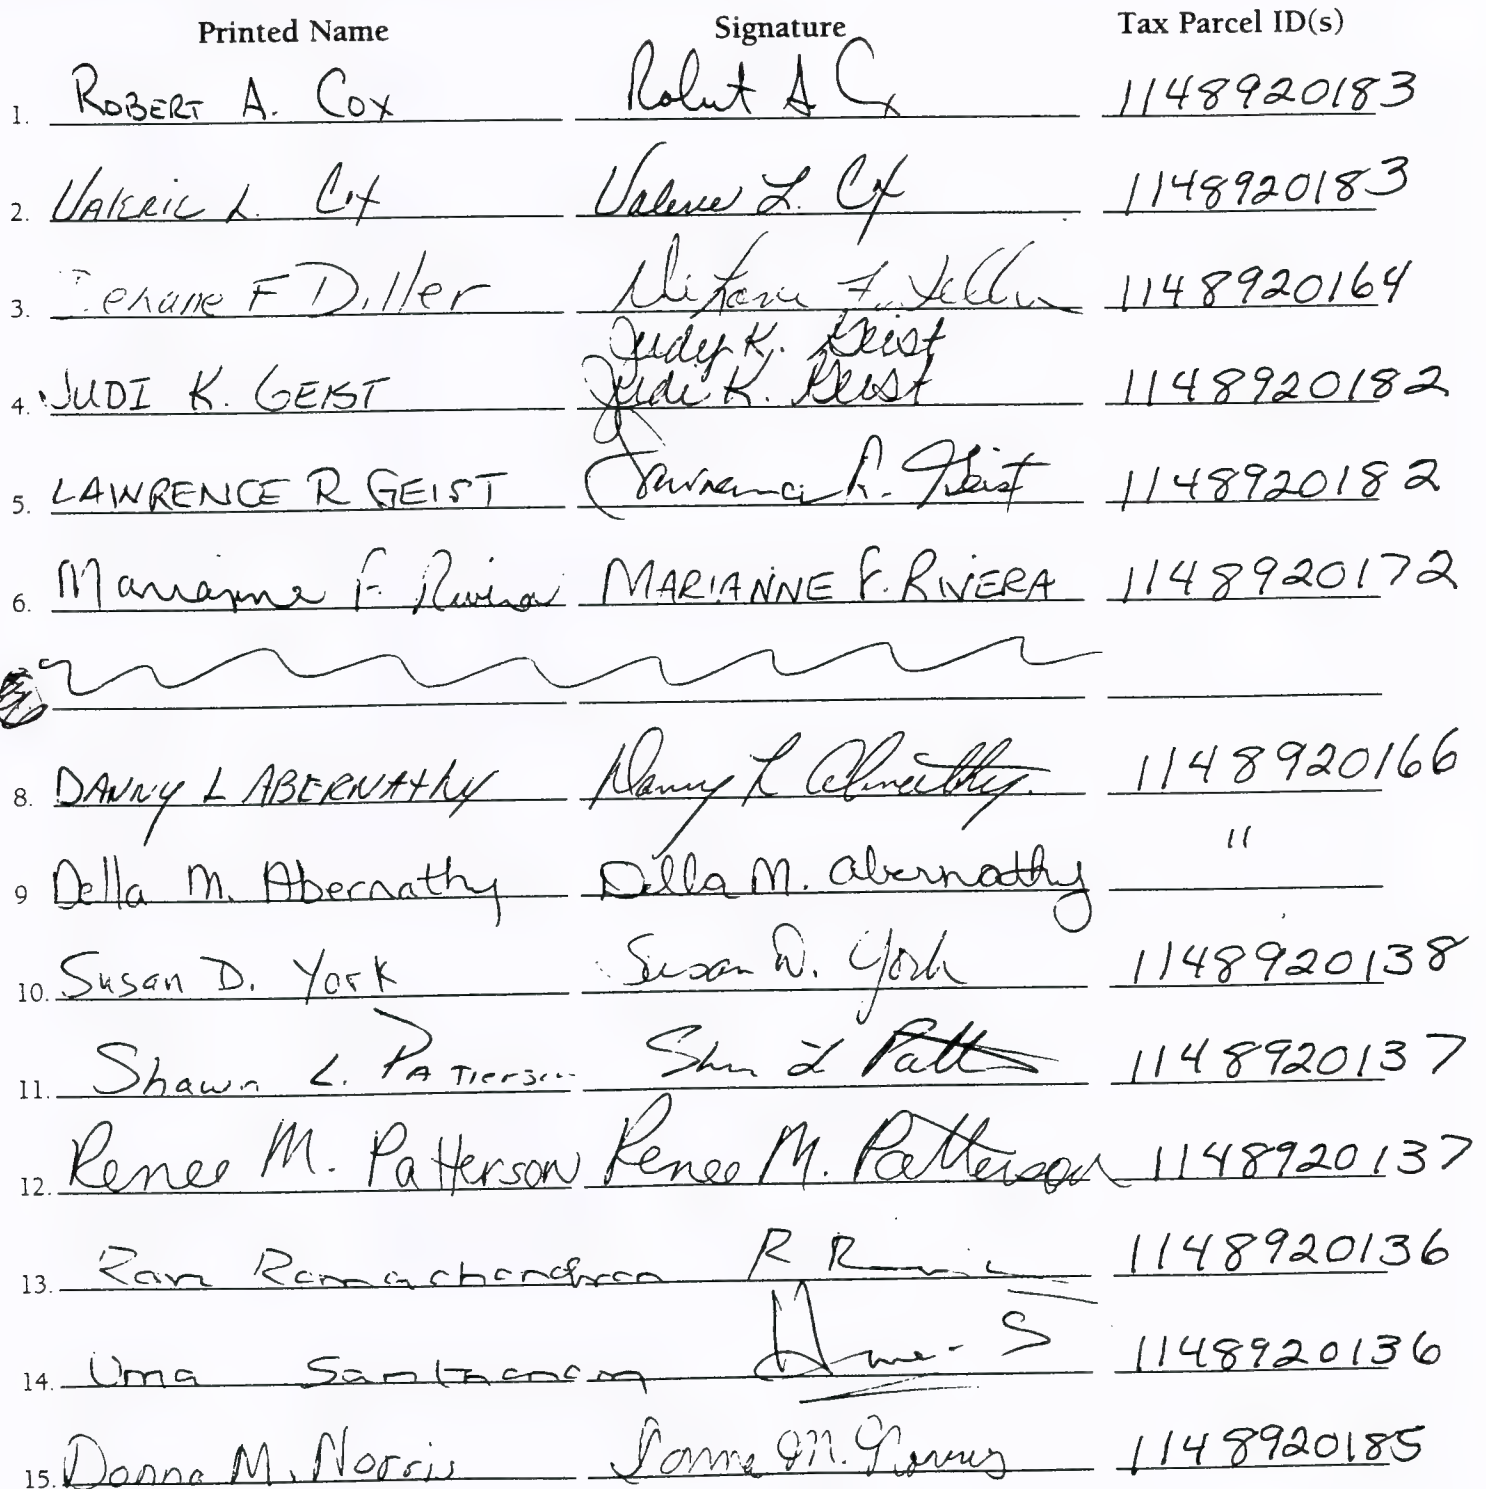 Printed Name Signature Tax Parcel ID(s)
1. ROBERT A. COX Robert A Cx 1148920183
2. VALERIE L. Cox Valerie L. Cox 1148920183
3. F Diller F. 1148920164
Judy K. Geist
4. JUDI K. GEIST Judi K. Geist 1148920182
5. LAWRENCE R GEIST Lawrence R. Geist 1148920182
6. Marianne F. Rivera MARIANNE F. RIVERA 1148920172
8. DANNY L ABERNATHY Danny L Abernathy 1148920166
9 Della M. Abernathy Della M. Abernathy "
10. Susan D. York Susan D. York 1148920138
11. Shawn L. PATTERSON Shawn L Patt 1148920137
12. Renee M. Patterson Renee M. Patterson 1148920137
13. Ravi Ramachandran R R 1148920136
14. Uma Santhanam Uma S 1148920136
15. Donna M. Norris Donna M. Norris 1148920185